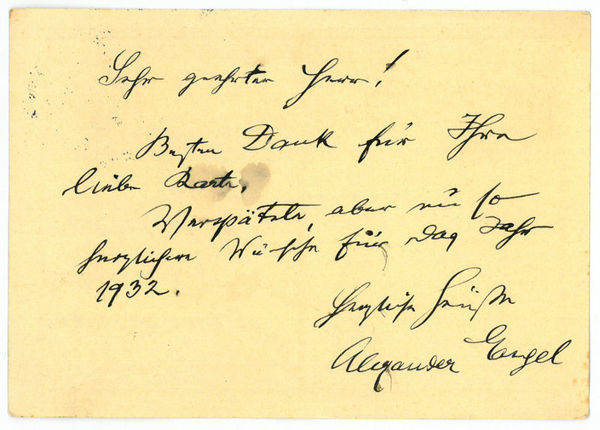 Sehr geehrter Herr!
Besten Dank für Ihre
liebe Karte.
Verspätete, aber um so
herzlichere Wünsche für das Jahr
1932.
Herzliche Grüße
Alexander Engel